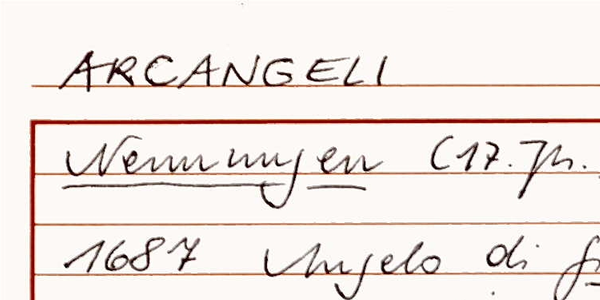 ARCANGELI
Nennungen (17. Jh.
1687 Angelo di